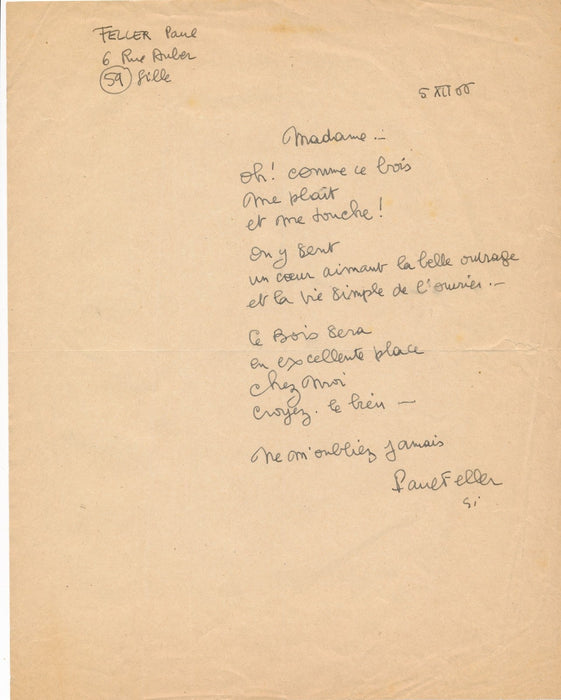 FELLER Paul
6 Rue Auber
59 Lille
5 XII 66
Madame. –
Oh! comme ce bois
me plaît
et me touche!
On y sent
un cœur aimant la belle ouvrage
et la vie simple de l'ouvrier. –
Ce Bois sera
en excellente place
chez moi
croyez. le bien –
Ne m'oubliez jamais
Paul Feller
sj